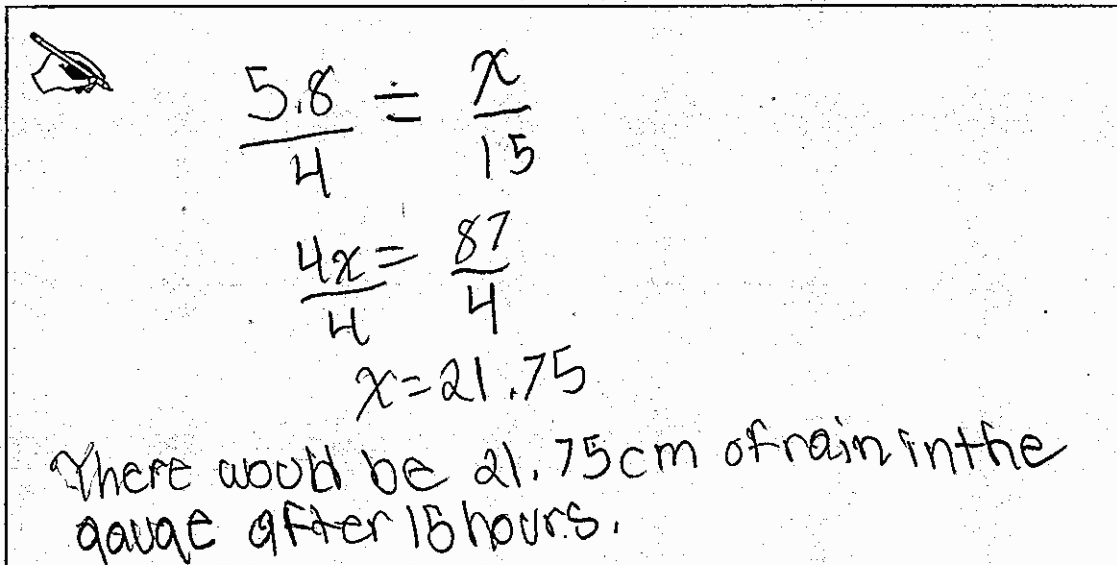 5.8/4 = x/15
4x/4 = 87/4
x=21.75
There would be 21.75cm of rain in the
gauge after 15 hours.